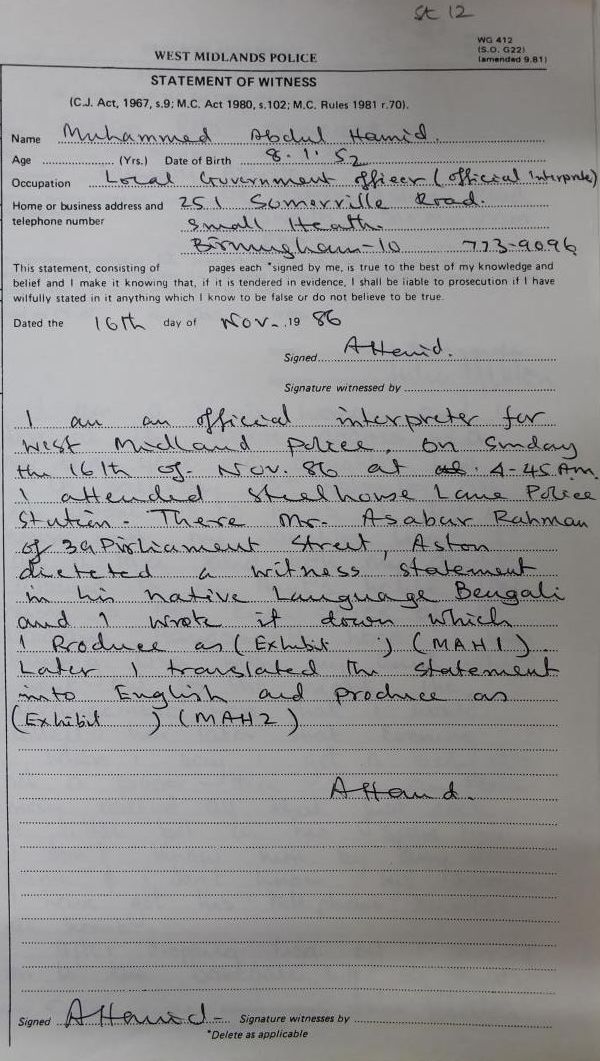 St 12
WG 412
(S.O. G22)
(amended 9.81)
WEST MIDLANDS POLICE
STATEMENT OF WITNESS
(C.J. Act, 1967, s.9; M.C. Act 1980, s.102; M.C. Rules 1981 r.70).
Name Muhammed Abdul Hamid.
Age (Yrs.) Date of Birth 8.1.52
Occupation Local Government officer (official Interprete)
Home or business address and 251 Somerville Road.
telephone number Small Heath
Birmingham-10 773-9096
This statement, consisting of pages each *signed by me, is true to the best of my knowledge and
belief and I make it knowing that, if it is tendered in evidence, I shall be liable to prosecution if I have
wilfully stated in it anything which I know to be false or do not believe to be true.
Dated the 16th day of Nov. 19 86
Signed AHamid.
Signature witnessed by
I am an official interpreter for
West Midland Police, on Sunday
the 16th of Nov. 86 at 4-45 Am.
I attended Steelhouse Lane Police
Station - There Mr. Asabur Rahman
of 39 Pirliament Street, Aston
dicteted a witness statement
in his native Language Bengali
and I wrote it down which
I Produce as (Exhibit ) (MAH1)
Later I translated the statement
into English and produce as
(Exhibit ) (MAH2)
AHamid.
Signed AHamid- Signature witnesses by
*Delete as applicable